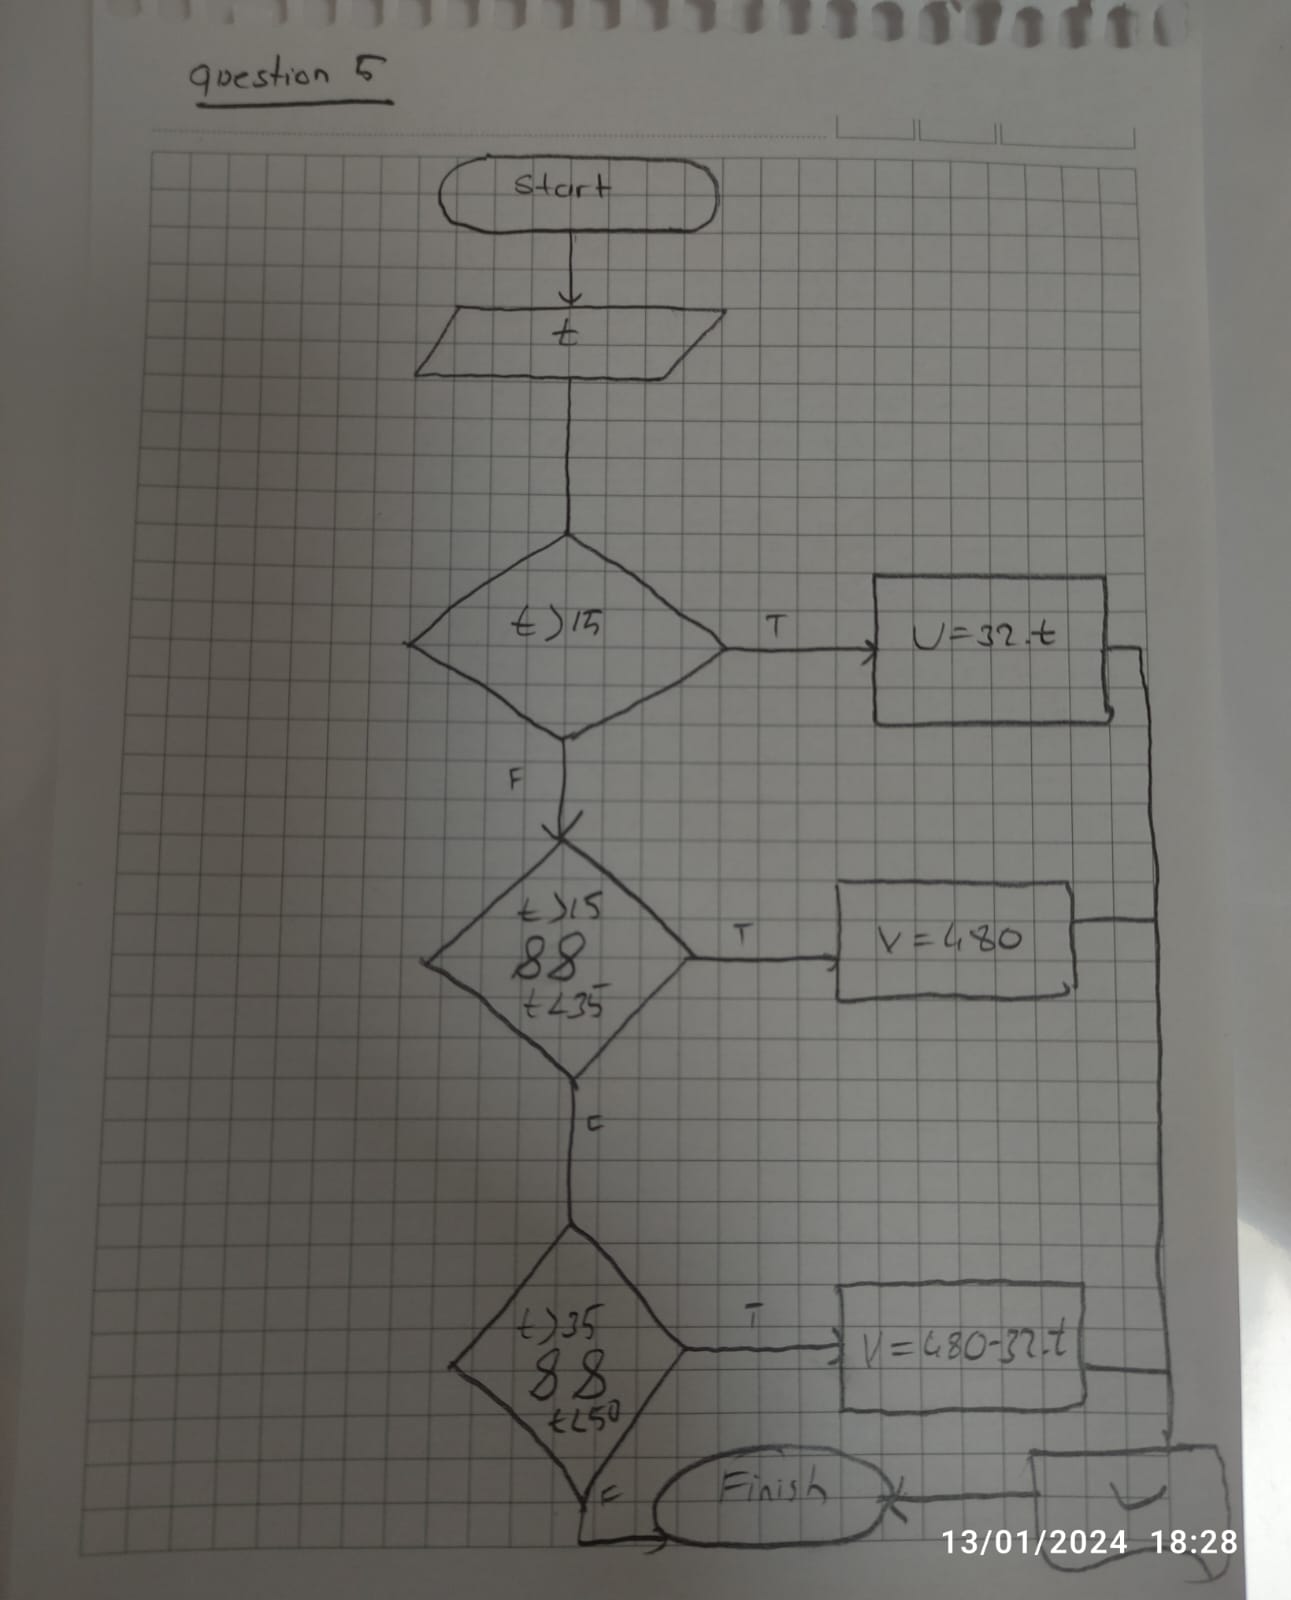 question 5
start
t
t>15
T
U=32.t
F
t>15
88
t<35
T
V=480
F
t>35
88
t<50
T
V=480-32.t
F
Finish
U
13/01/2024 18:28